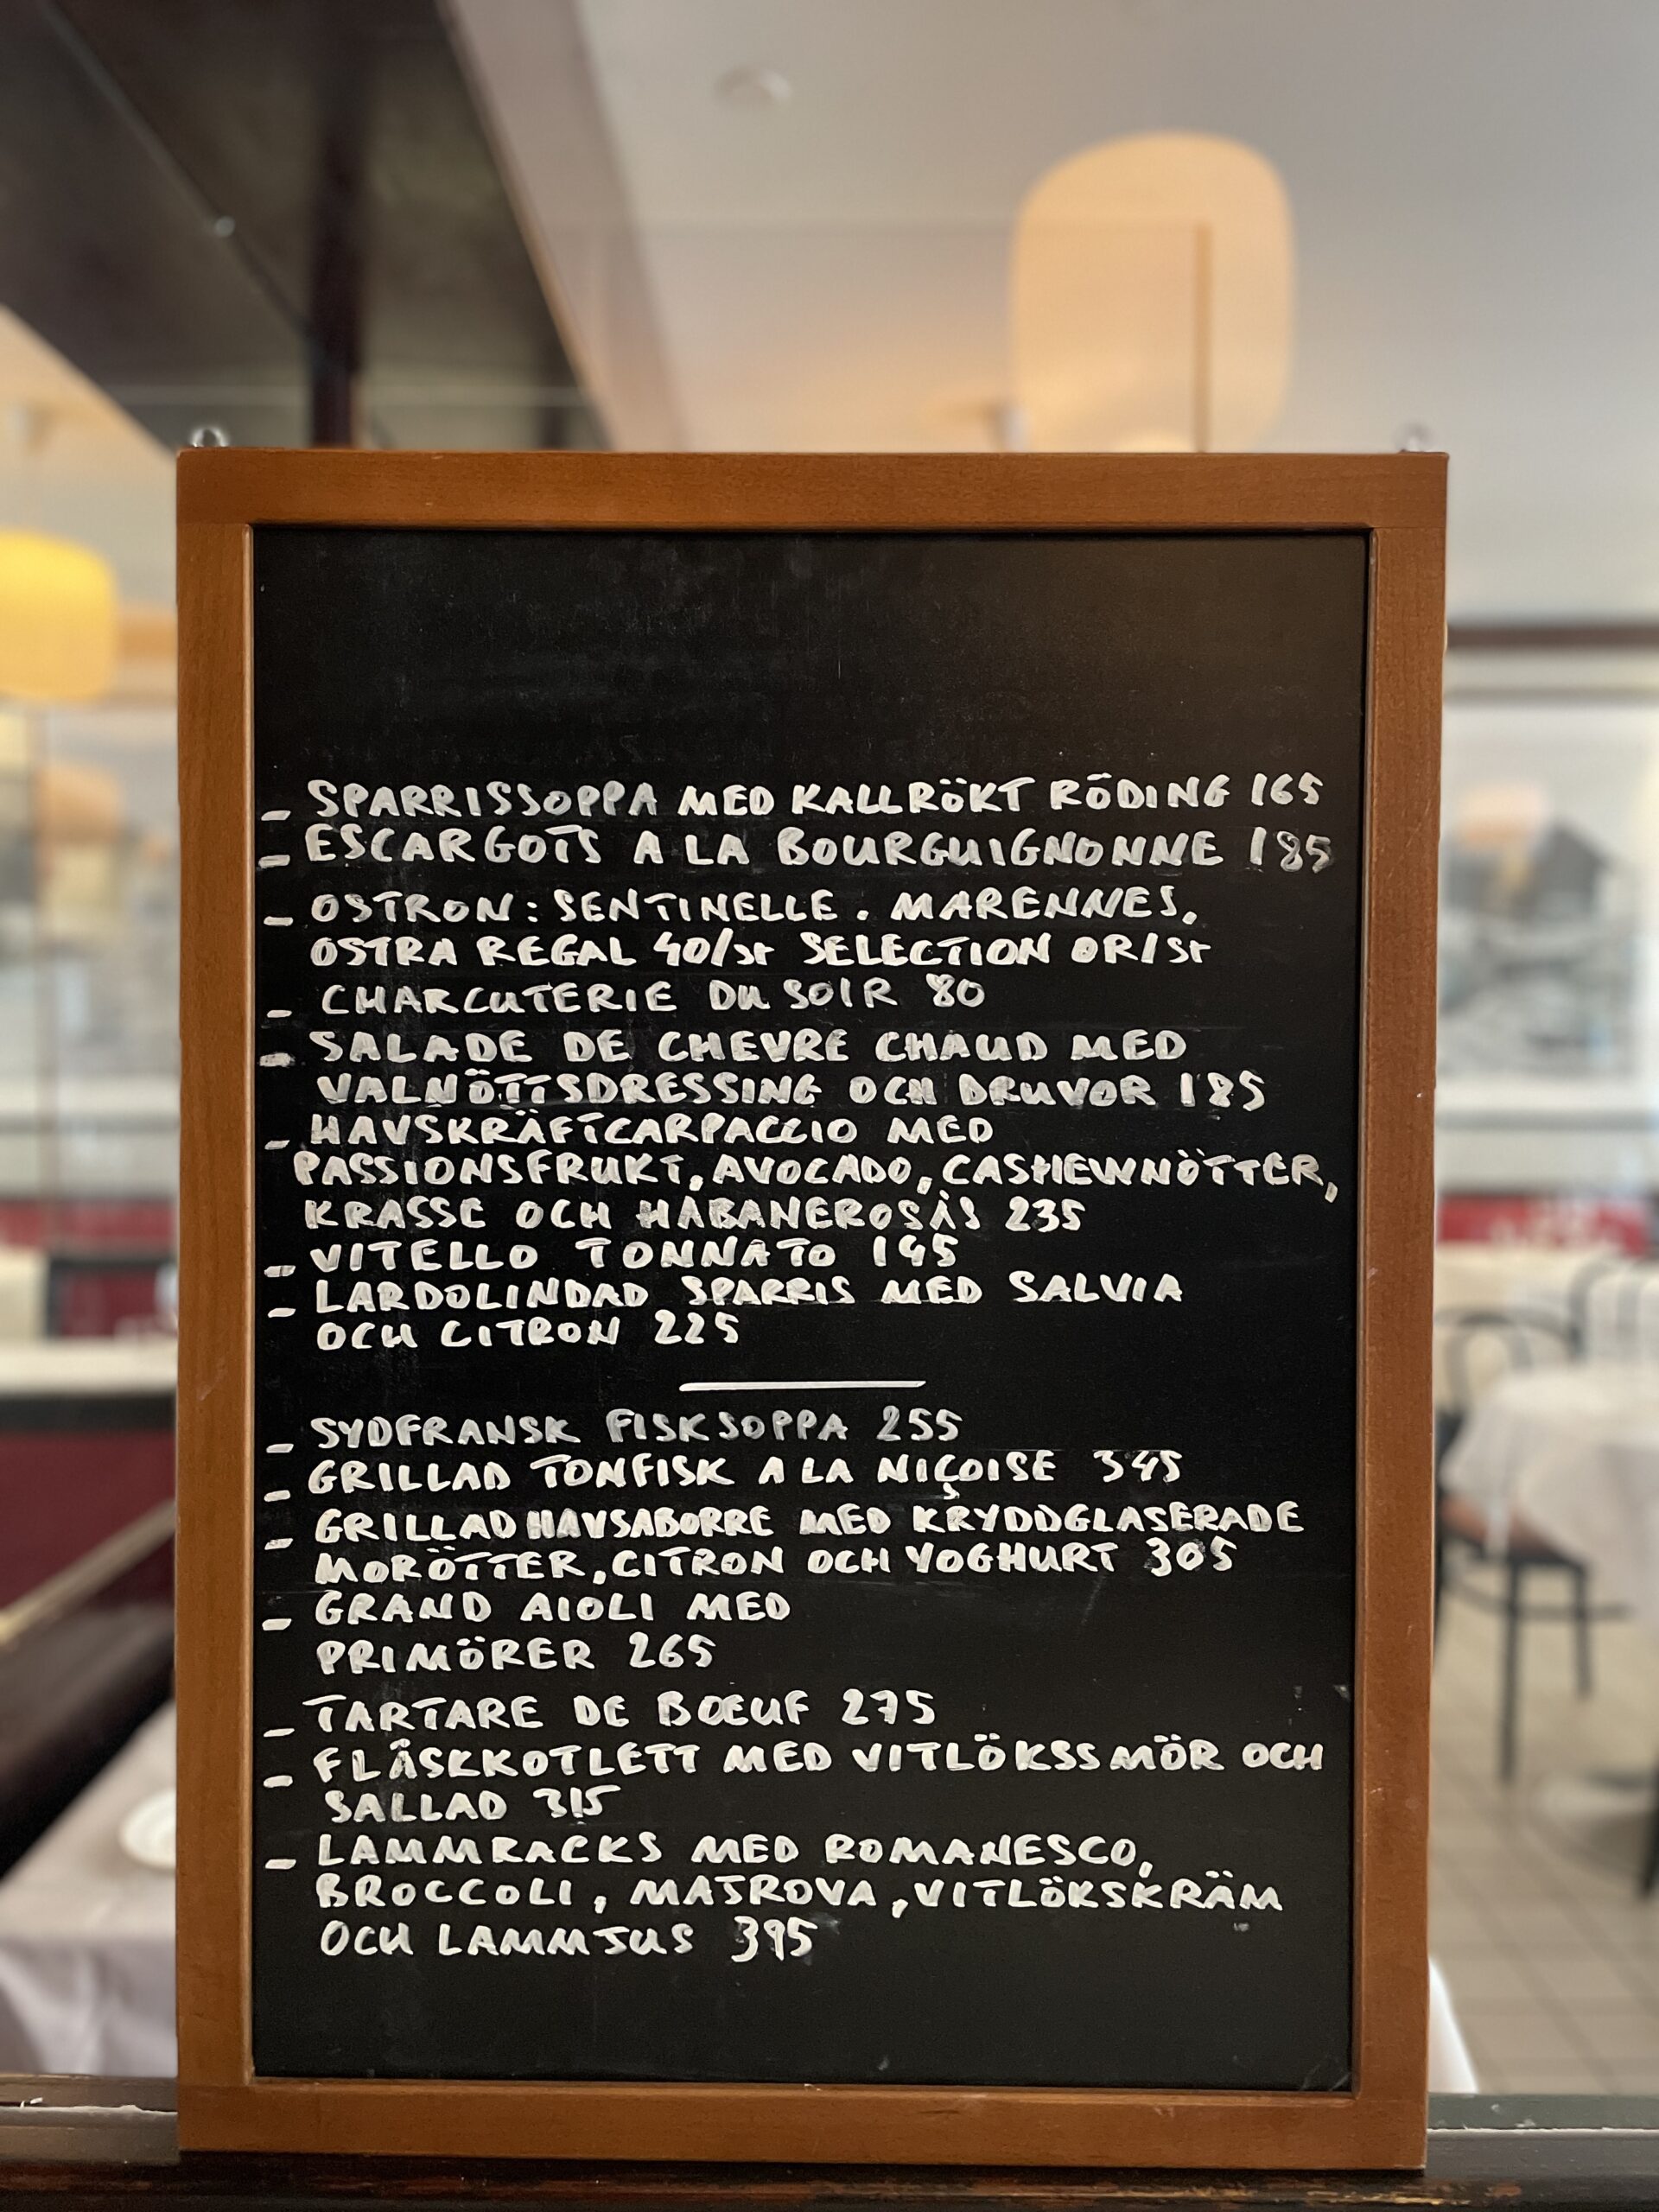 - SPARRISSOPPA MED KALLRÖKT RÖDING 165
- ESCARGOTS A LA BOURGUIGNONNE 185
- OSTRON: SENTINELLE. MARENNES,
OSTRA REGAL 40/st SELECTION OR/st
- CHARCUTERIE DU SOIR 80
- SALADE DE CHEVRE CHAUD MED
VALNÖTTSDRESSING OCH DRUVOR 185
- HAVSKRÄFTCARPACCIO MED
PASSIONSFRUKT, AVOCADO, CASHEWNÖTTER,
KRASSE OCH HABANEROSÅS 235
- VITELLO TONNATO 195
- LARDOLINDAD SPARRIS MED SALVIA
OCH CITRON 225
- SYDFRANSK FISKSOPPA 255
- GRILLAD TONFISK A LA NIÇOISE 345
- GRILLAD HAVSABORRE MED KRYDDGLASERADE
MORÖTTER, CITRON OCH YOGHURT 305
- GRAND AIOLI MED
PRIMÖRER 265
- TARTARE DE BŒUF 275
- FLÄSKKOTLETT MED VITLÖKSSMÖR OCH
SALLAD 315
- LAMMRACKS MED ROMANESCO,
BROCCOLI, MAJROVA, VITLÖKSKRÄM
OCH LAMMJUS 395